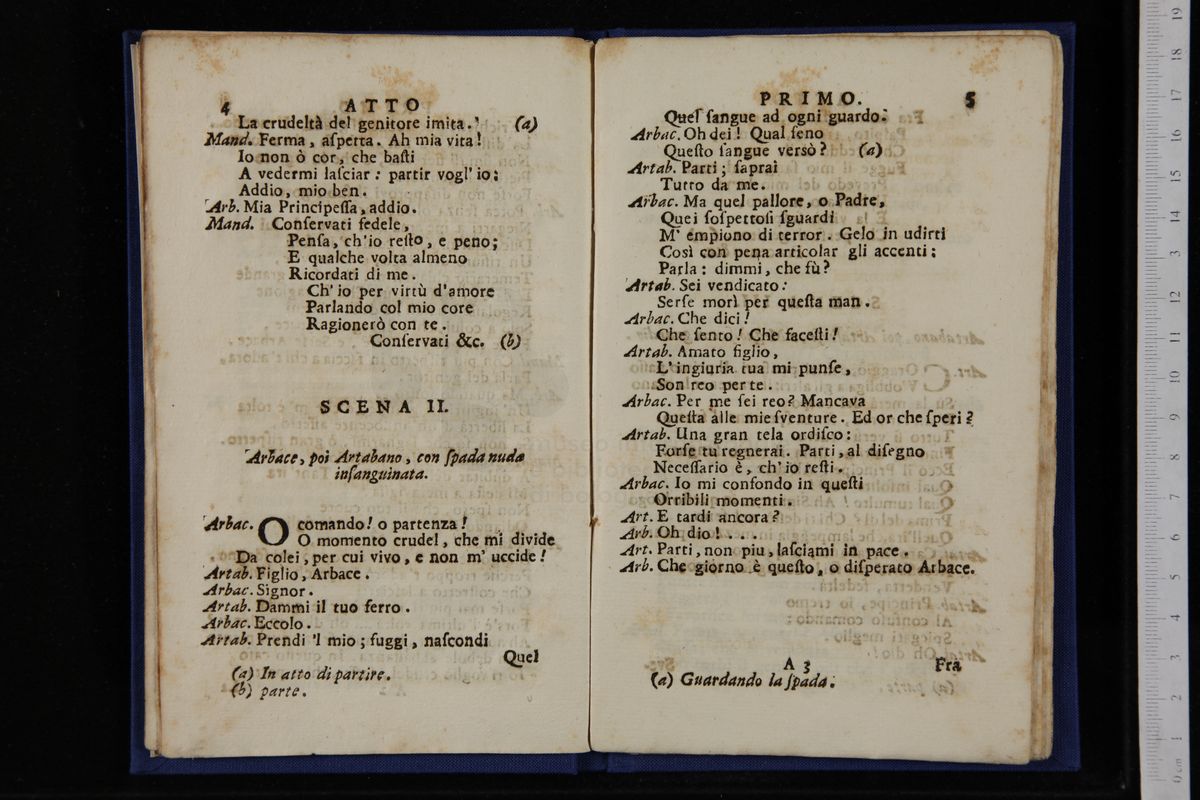 4 ATTO
La crudeltà del genitore imita. (a)
Mand. Ferma, aſpetta. Ah mia vita!
Io non ò cor, che baſti
A vedermi laſciar: partir vogl' io;
Addio, mio ben.
Arb. Mia Principeſſa, addio.
Mand. Conſervati fedele,
Penſa, ch'io reſto, e peno;
E qualche volta almeno
Ricordati di me.
Ch' io per virtù d'amore
Parlando col mio core
Ragionerò con te.
Conſervati &c. (b)
SCENA II.
Arbace, poi Artabano, con ſpada nuda
inſanguinata.
Arbac. O comando! o partenza!
O momento crudel, che mi divide
Da colei, per cui vivo, e non m' uccide!
Artab. Figlio, Arbace.
Arbac. Signor.
Artab. Dammi il tuo ferro.
Arbac. Eccolo.
Artab. Prendi 'l mio; fuggi, naſcondi
Quel
(a) In atto di partire.
(b) parte.
PRIMO. 5
Quel ſangue ad ogni guardo.
Arbac. Oh dei! Qual ſeno
Queſto ſangue versò? (a)
Artab. Parti; ſaprai
Tutto da me.
Arbac. Ma quel pallore, o Padre,
Quei ſoſpettoſi ſguardi
M' empiono di terror. Gelo in udirti
Così con pena articolar gli accenti:
Parla: dimmi, che fù?
Artab. Sei vendicato:
Serſe morì per queſta man.
Arbac. Che dici!
Che ſento! Che faceſti!
Artab. Amato figlio,
L'ingiuria tua mi punſe,
Son reo per te.
Arbac. Per me ſei reo? Mancava
Queſta alle mie ſventure. Ed or che ſperi?
Artab. Una gran tela ordiſco:
Forſe tu regnerai. Parti, al diſegno
Neceſſario è, ch' io reſti.
Arbac. Io mi confondo in queſti
Orribili momenti.
Art. E tardi ancora?
Arb. Oh dio! . . .
Art. Parti, non piu, laſciami in pace.
Arb. Che giorno è queſto, o diſperato Arbace.
A 3 Fra
(a) Guardando la ſpada.